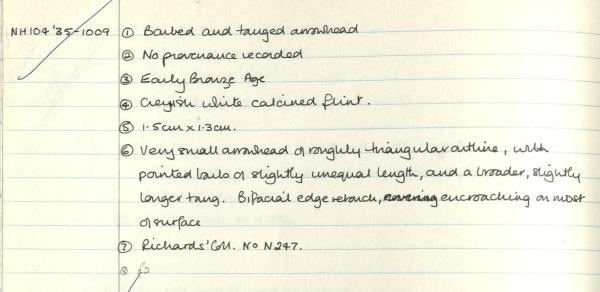 NH104'35-1009 ① Barbed and tanged arrowhead
② No provenance recorded
③ Early Bronze Age
④ Greyish white calcined flint.
⑤ 1.5cm x 1.3cm.
⑥ Very small arrowhead of roughly triangular outline, with
pointed barbs of slightly unequal length, and a broader, slightly
longer tang. Bifacial edge retouch, covering encroaching on most
of surface
⑦ Richards' Coll. No N247.
⑧